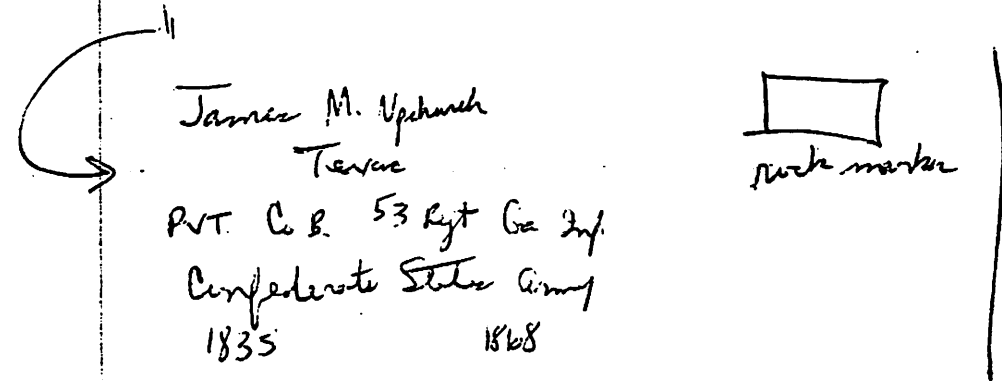 James M. Upchurch
Texas
PVT. Co B. 53 Rgt Ga Inf.
Confederate States Army
1835 1868
rock marker